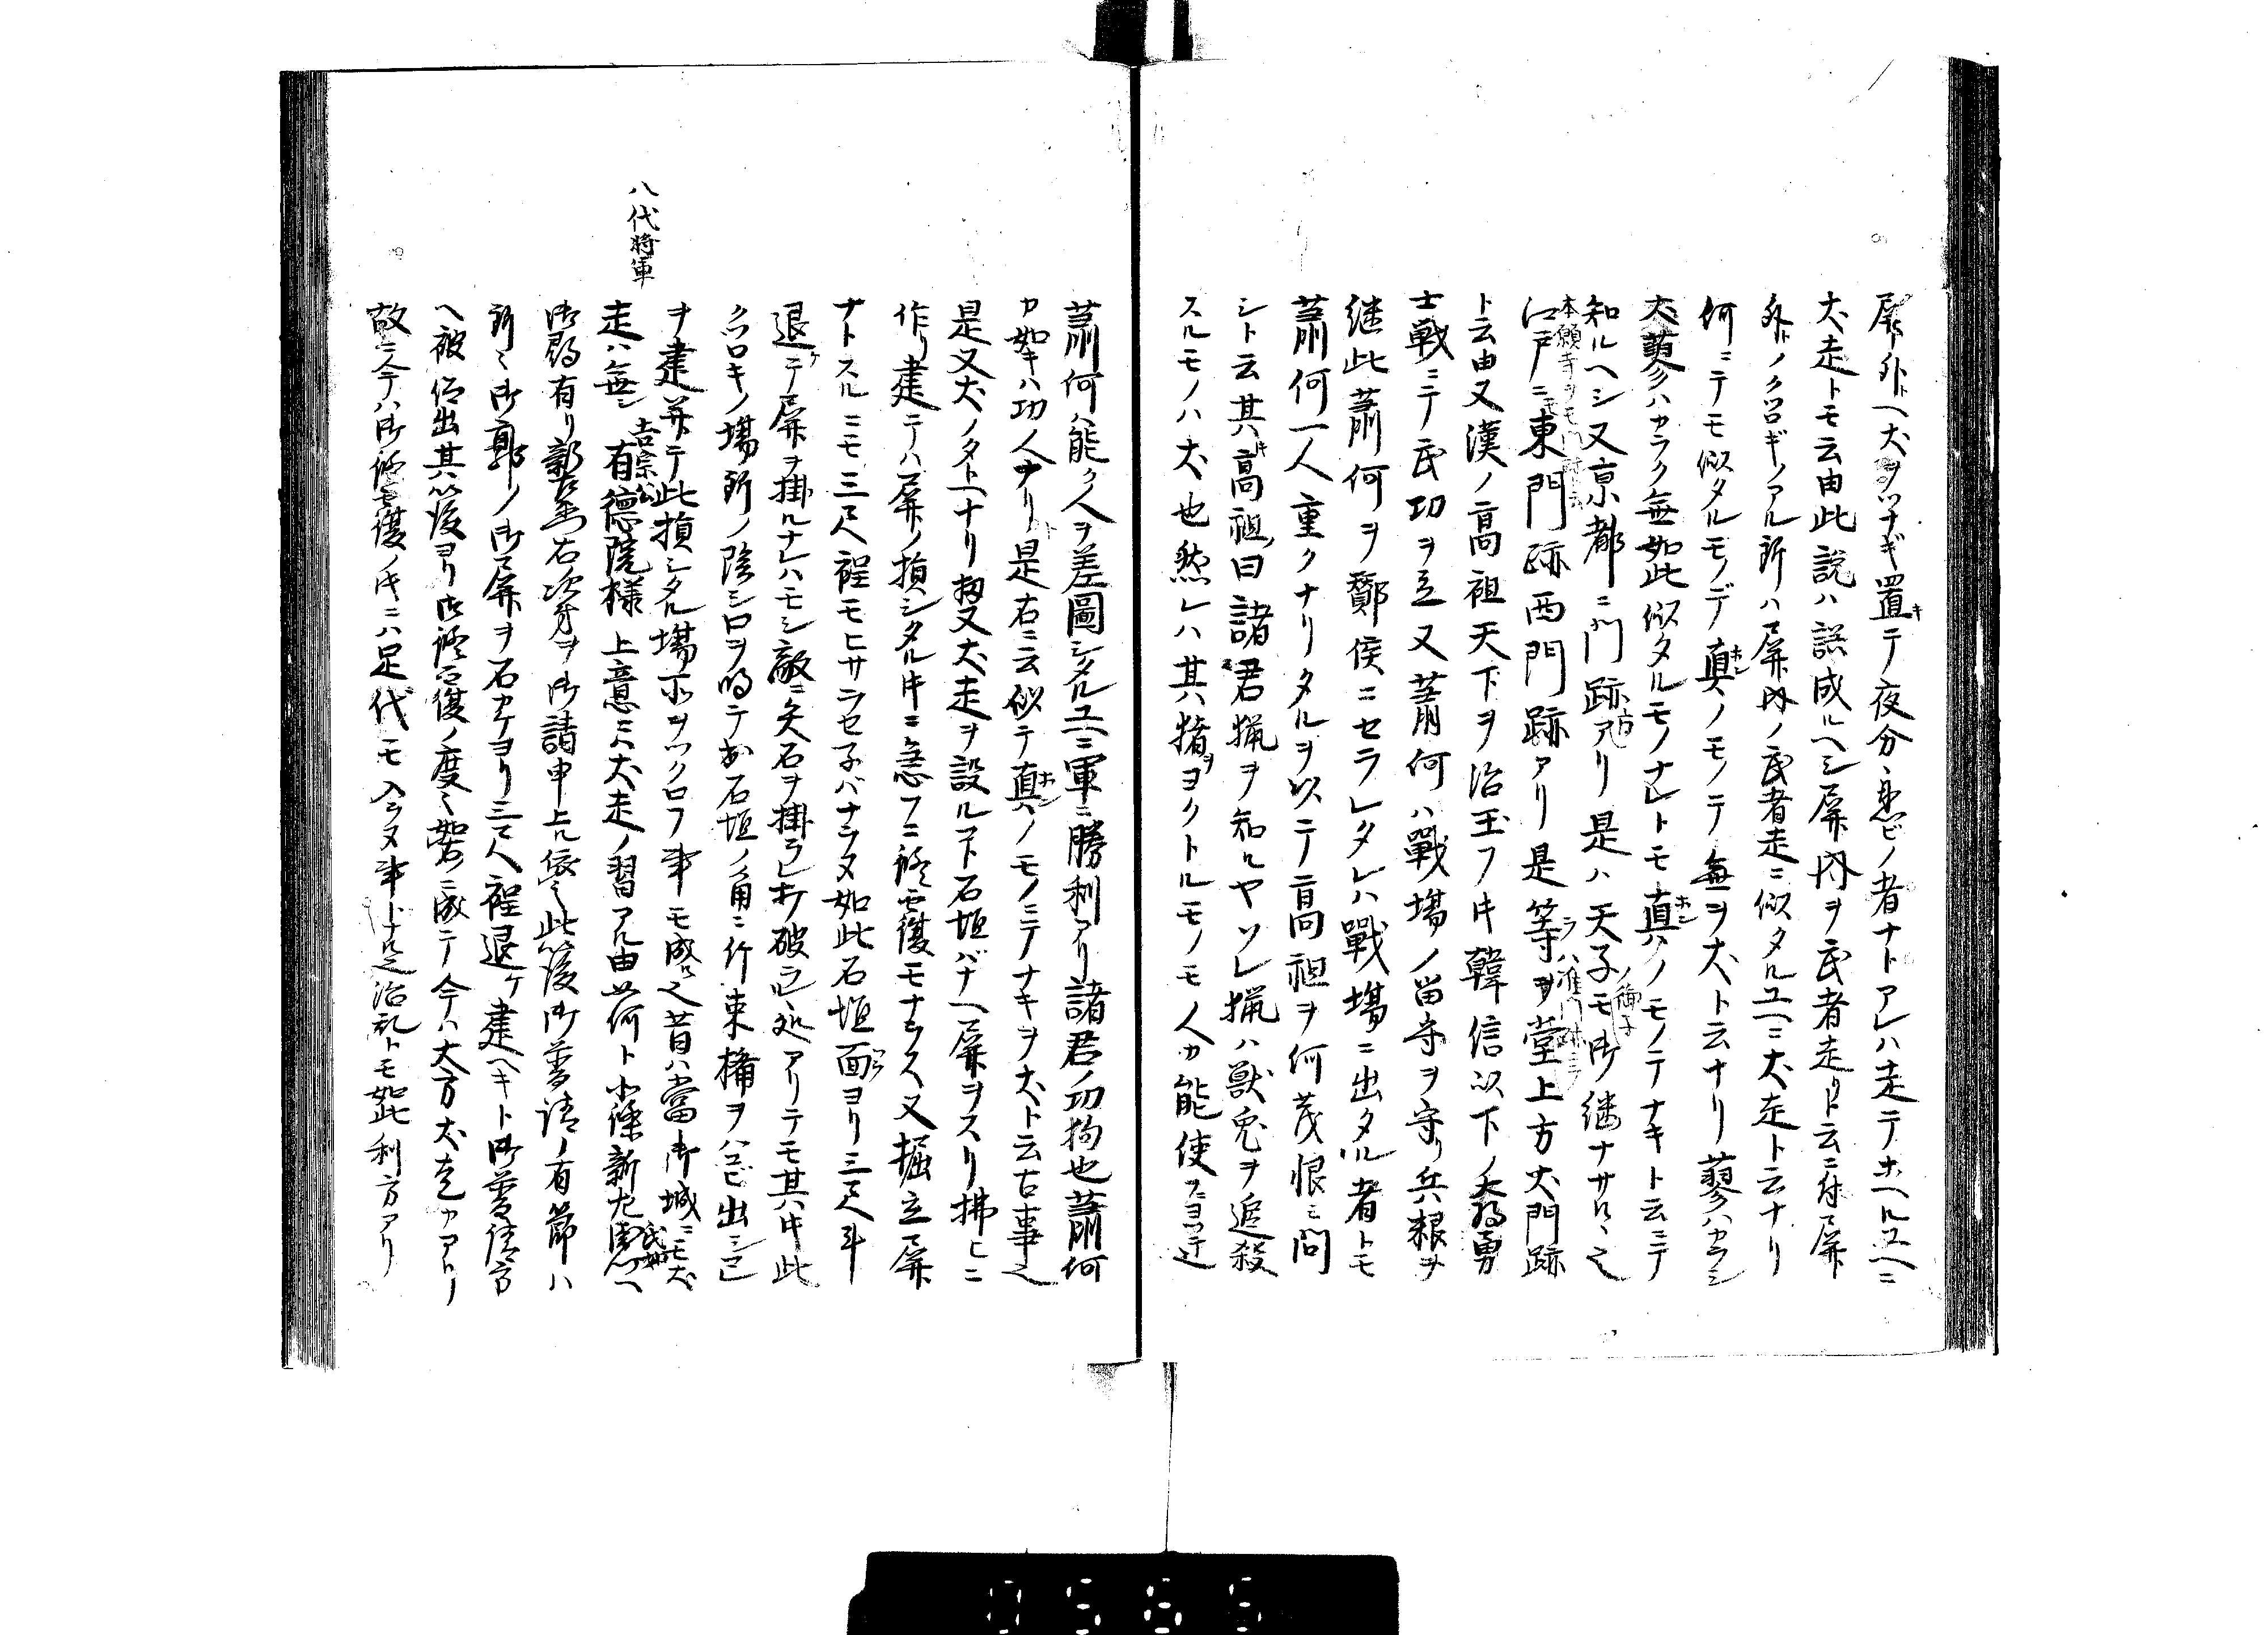 屏外ヘ犬ヲツナギ置キテ夜分忍ビノ者ナトアレハ走テホヘルユヘニ
犬走トモ云由此説ハ誤成ルヘシ屏内ヲ武者走リト云ニ付屏
外トノクツロギノアル所ハ屏内ノ武者走ニ似タルユヘニ犬走ト云ナリ
何ニテモ似タルモノデ真ノモノテ無ヲ犬ト云ナリ蓼ハカラシ
犬蓼ハカラク無如此似タルモノナレトモ真ノモノテナキト云ニテ
知ルヘシ又京都ニ門跡方アリ是ハ天子モ御継ナサルヽ也
江戸ニモ東門跡西門跡アリ是等ヲ堂上方犬門跡
ト云由又漢ノ高祖天下ヲ治玉フ时韓信以下ノ大将勇
士戦ニテ武功ヲ立又蕭何ハ戰場ノ留守ヲ守リ兵粮ヲ
継此蕭何ヲ酇侯ニセラレタレハ戰場ニ出タル者トモ
蕭何一人重クナリタルヲ以テ高祖ヲ何茂恨ミ問
シト云其时高祖曰諸君猟ヲ知ルヤソレ猟ハ獣兎ヲ追殺
スルモノハ犬也然レハ其猪ヲヨクトルモノモ人カ能使フニヨリテ也
蕭何ハ能ク人ヲ差圖シタルユヘニ軍ニ勝利アリ諸君ノ功狗也蕭何
カ如キハ功人ナリト是右ニ云似テ真ノモノニテナキヲ犬ト云古事也
是又犬ノタトヘナリ扨又犬走ヲ設ルコト石垣バナヘ屏ヲスリ拂ヒニ
作リ建テハ屏ノ損シタル时ニ急フニ修復モナラス又掘立屏
ナトスルニモ三尺程モヒサラセ子バナラヌ如此石垣面ヨリ三尺斗
退ケテ屏ヲ掛ルナレハモシ敵ニ矢石ヲ掛ラレ打破ラルヽ処アリテモ其时此
クツロキノ場所ノ陰シロヲ明テ於石垣ノ角ニ竹束楯ヲハコビ出シ
ヲ建並テ此損シタル場所ヲツクロフ事モ成ル也昔ハ當御城ニモ犬
八代將軍
走ハ無シ吉宗公有德院様上意ニハ犬走ノ習アル由如何ト小笠新左衛門ヘ
御尋有リ新左衛門右次第ヲ御請申上ル依之此後御普請ノ有節ハ
所々御郭ノ御屏ヲ石カケヨリ三尺程退ケ建ヘキト御普請方
ヘ被仰出其後ヨリ御修復ノ度々如右ニ成テ今ハ大方犬走カアリ
故ニテハ御修復ノ时ニハ足代モ入ラヌ事トナル也治乱トモ如此利方アリ